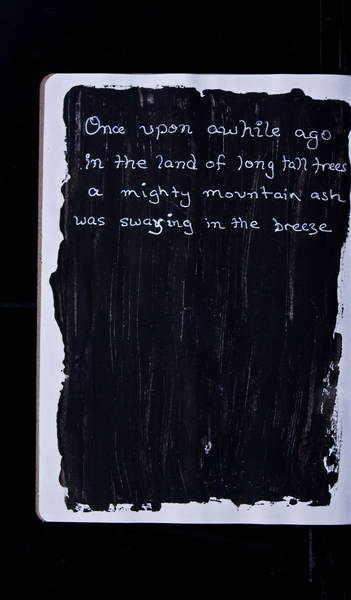 Once upon awhile ago
in the land of long tall trees
a mighty mountain ash
was swaying in the breeze